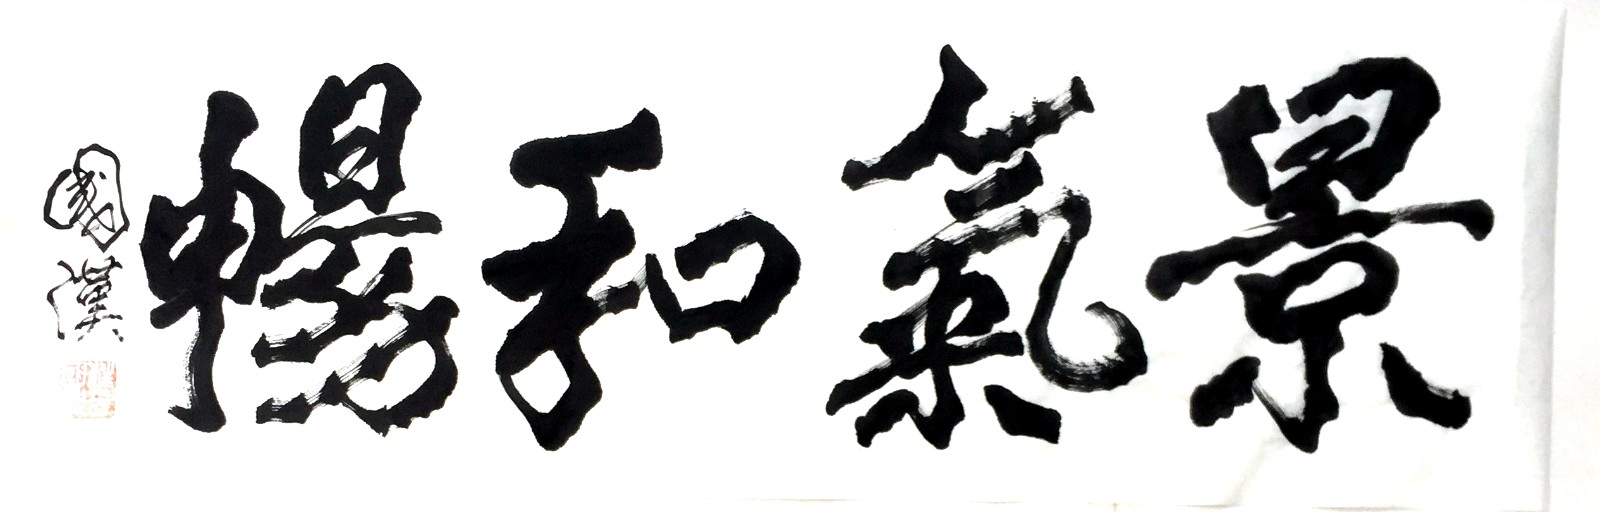 景氣和暢
國漢